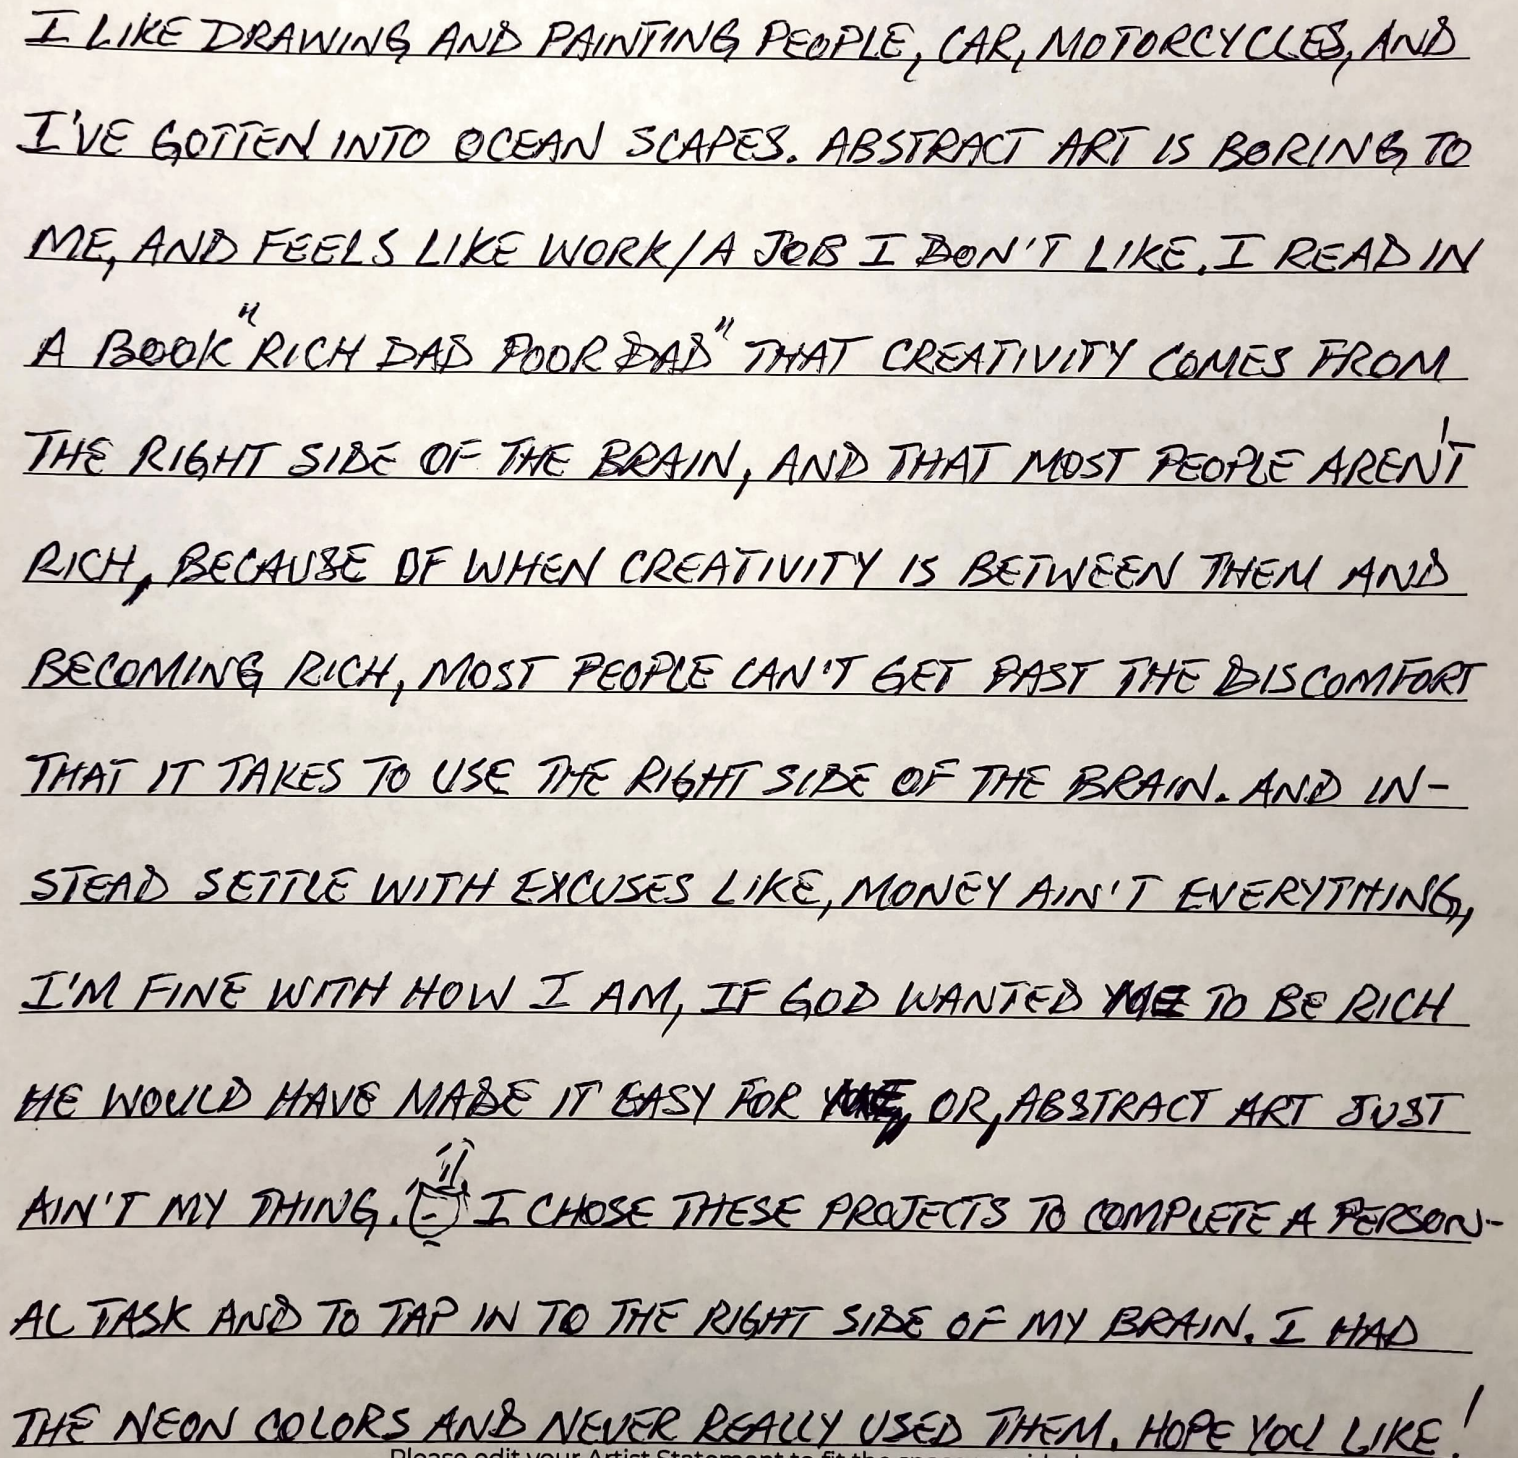 I LIKE DRAWING AND PAINTING PEOPLE, CAR, MOTORCYCLES, AND
I'VE GOTTEN INTO OCEAN SCAPES. ABSTRACT ART IS BORING TO
ME, AND FEELS LIKE WORK/A JOB I DON'T LIKE. I READ IN
A BOOK "RICH DAD POOR DAD" THAT CREATIVITY COMES FROM
THE RIGHT SIDE OF THE BRAIN, AND THAT MOST PEOPLE AREN'T
RICH, BECAUSE OF WHEN CREATIVITY IS BETWEEN THEM AND
BECOMING RICH, MOST PEOPLE CAN'T GET PAST THE DISCOMFORT
THAT IT TAKES TO USE THE RIGHT SIDE OF THE BRAIN. AND IN-
STEAD SETTLE WITH EXCUSES LIKE, MONEY AIN'T EVERYTHING,
I'M FINE WITH HOW I AM, IF GOD WANTED ME TO BE RICH
HE WOULD HAVE MADE IT EASY FOR ME, OR, ABSTRACT ART JUST
AIN'T MY THING. I CHOSE THESE PROJECTS TO COMPLETE A PERSON-
AL TASK AND TO TAP IN TO THE RIGHT SIDE OF MY BRAIN. I HAD
THE NEON COLORS AND NEVER REALLY USED THEM. HOPE YOU LIKE!
Please edit your Artist Statement to fit the space provided